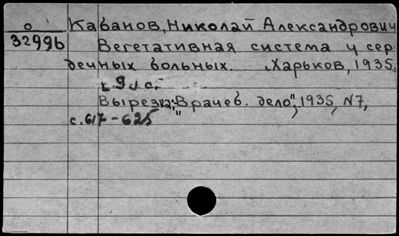 о Кабанов, Николай Александрович
32996 Вегетативная система у сер
дечных больных. Харьков, 1935.
9 с.
Вырезка: "Врачеб. дело", 1935, N7,
с. 617-625